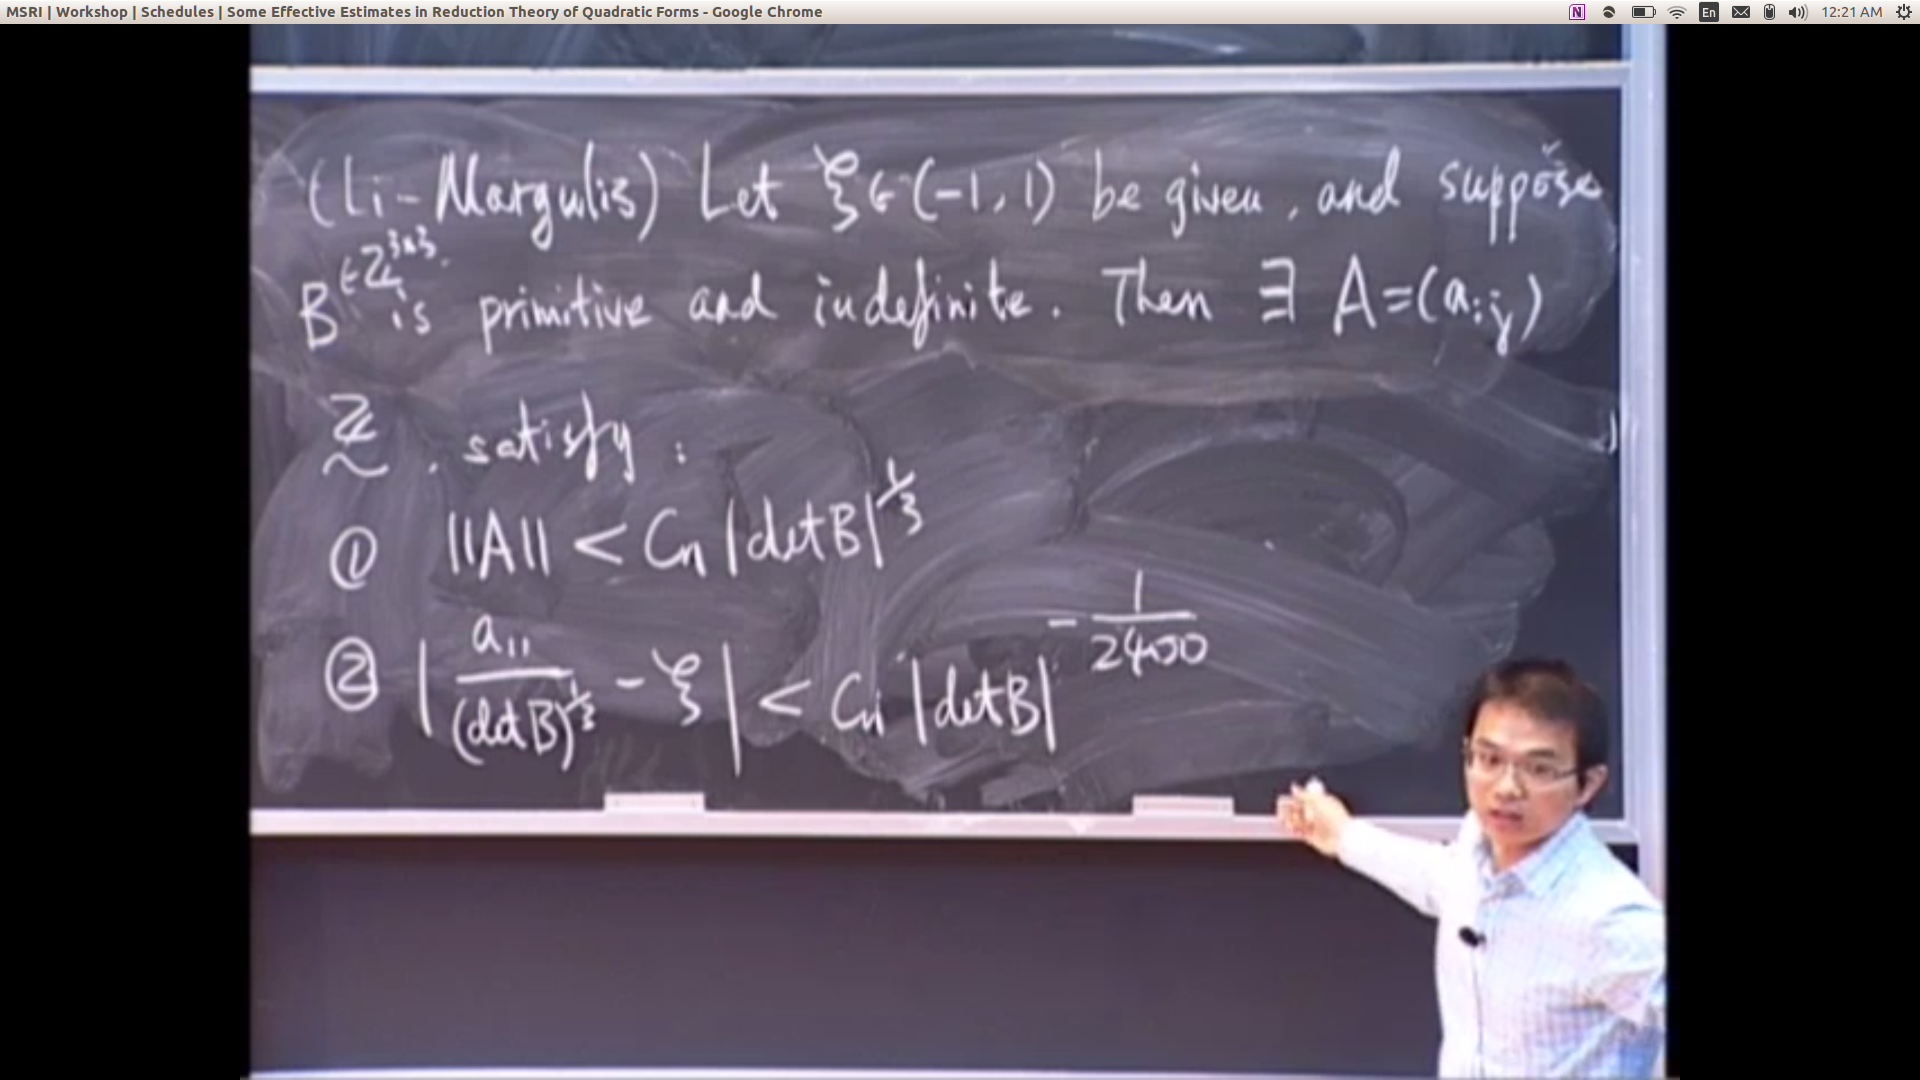 MSRI | Workshop | Schedules | Some Effective Estimates in Reduction Theory of Quadratic Forms - Google Chrome
En
12:21 AM
(Li-Margulis) Let ξ∈(-1,1) be given, and suppose
B ∈ℤ^{3x3} is primitive and indefinite. Then ∃ A=(a_{ij})
ℤ
~ . satisfy :
① ||A|| < C_n |det B|^{1/3}
② | a_{11} / (det B)^{1/3} - ξ | < C_n |det B|^{-1/2400}